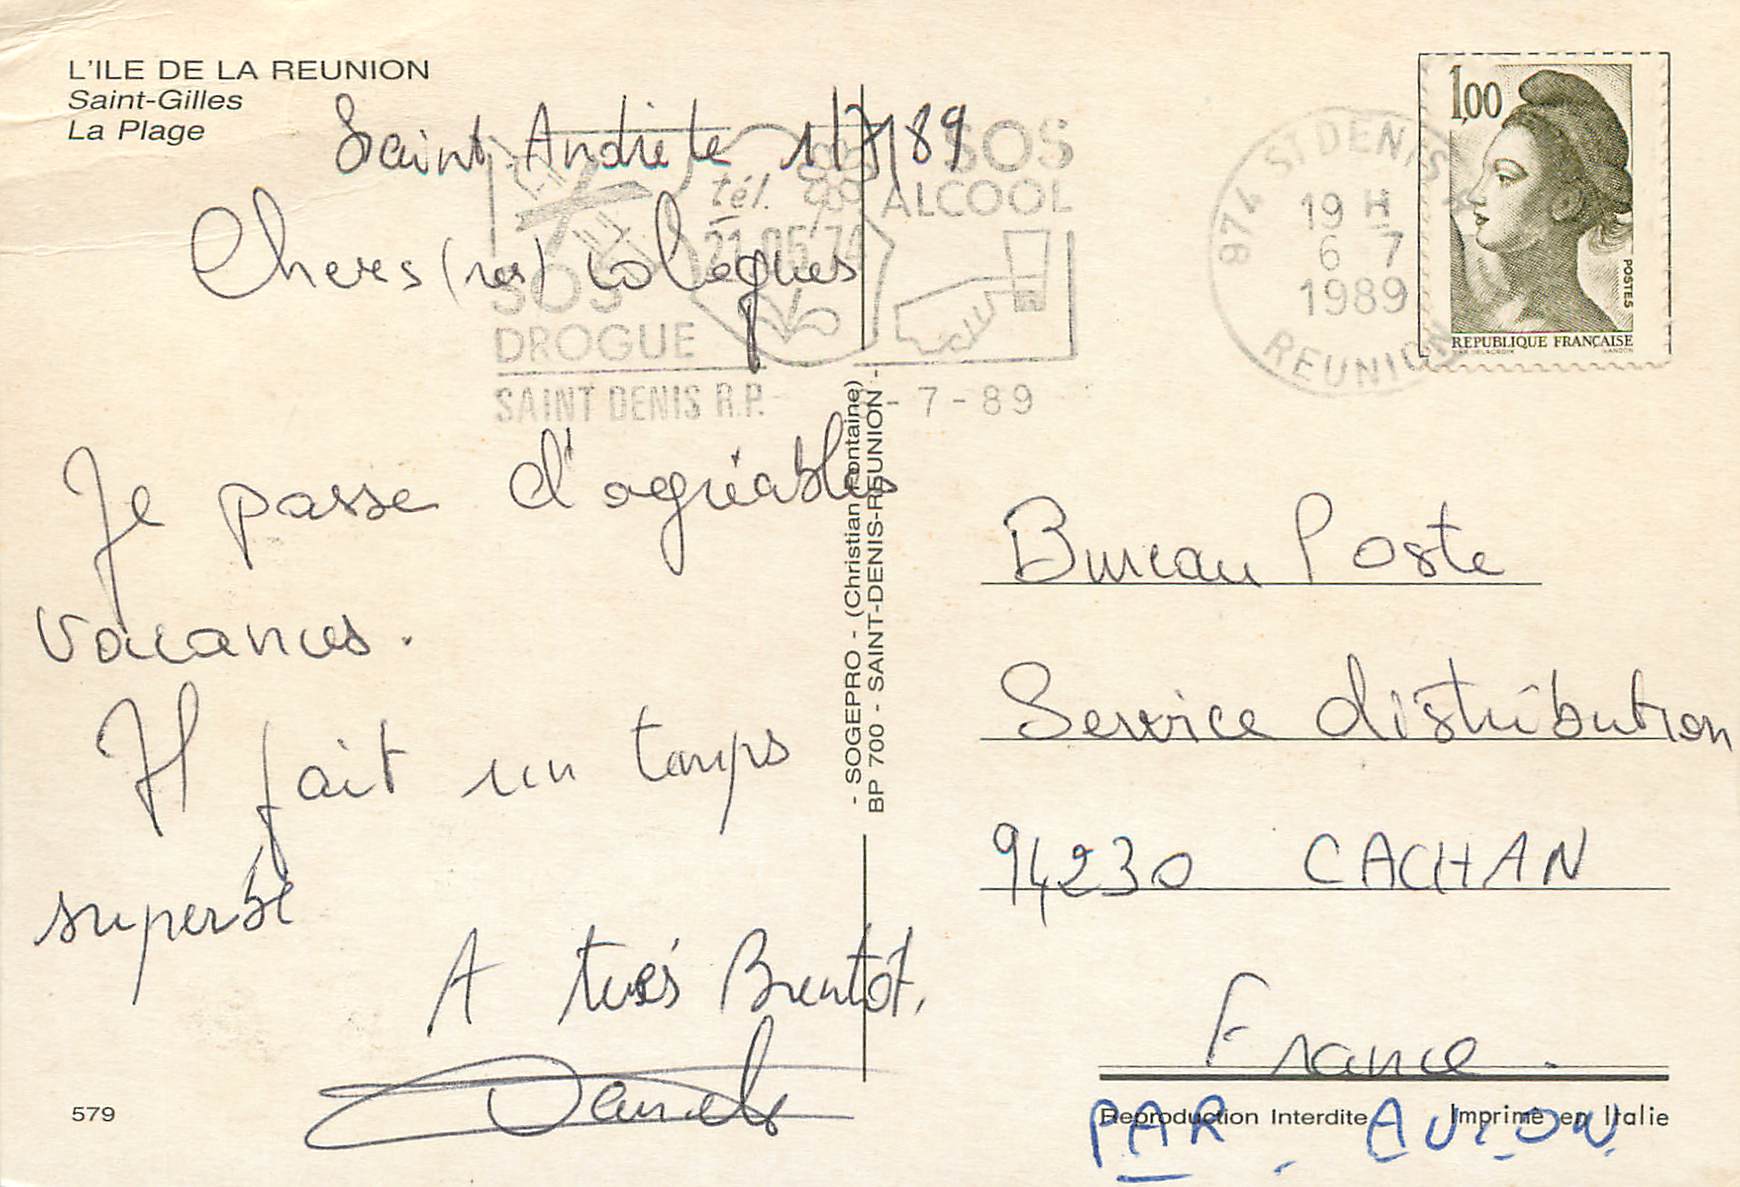 L'ILE DE LA REUNION
Saint-Gilles
La Plage
Saint Andre le 1/7/89
Cheres (res) collegues
Je passe d'agréables
vacances.
Il fait un temps
superbe
A très Bientôt,
579
SOS
DROGUE
tél.
21.05.74
SOS
ALCOOL
SAINT DENIS R.P.
- 7 - 89
974 ST DENIS
19 H
6 7
1989
REUNION
1,00
POSTES
REPUBLIQUE FRANCAISE
- SOGEPRO - (Christian Fontaine)
BP 700 - SAINT-DENIS-REUNION -
Bureau Poste
Service distribution
94230 CACHAN
France.
Reproduction Interdite Imprime en Italie
PAR AVION